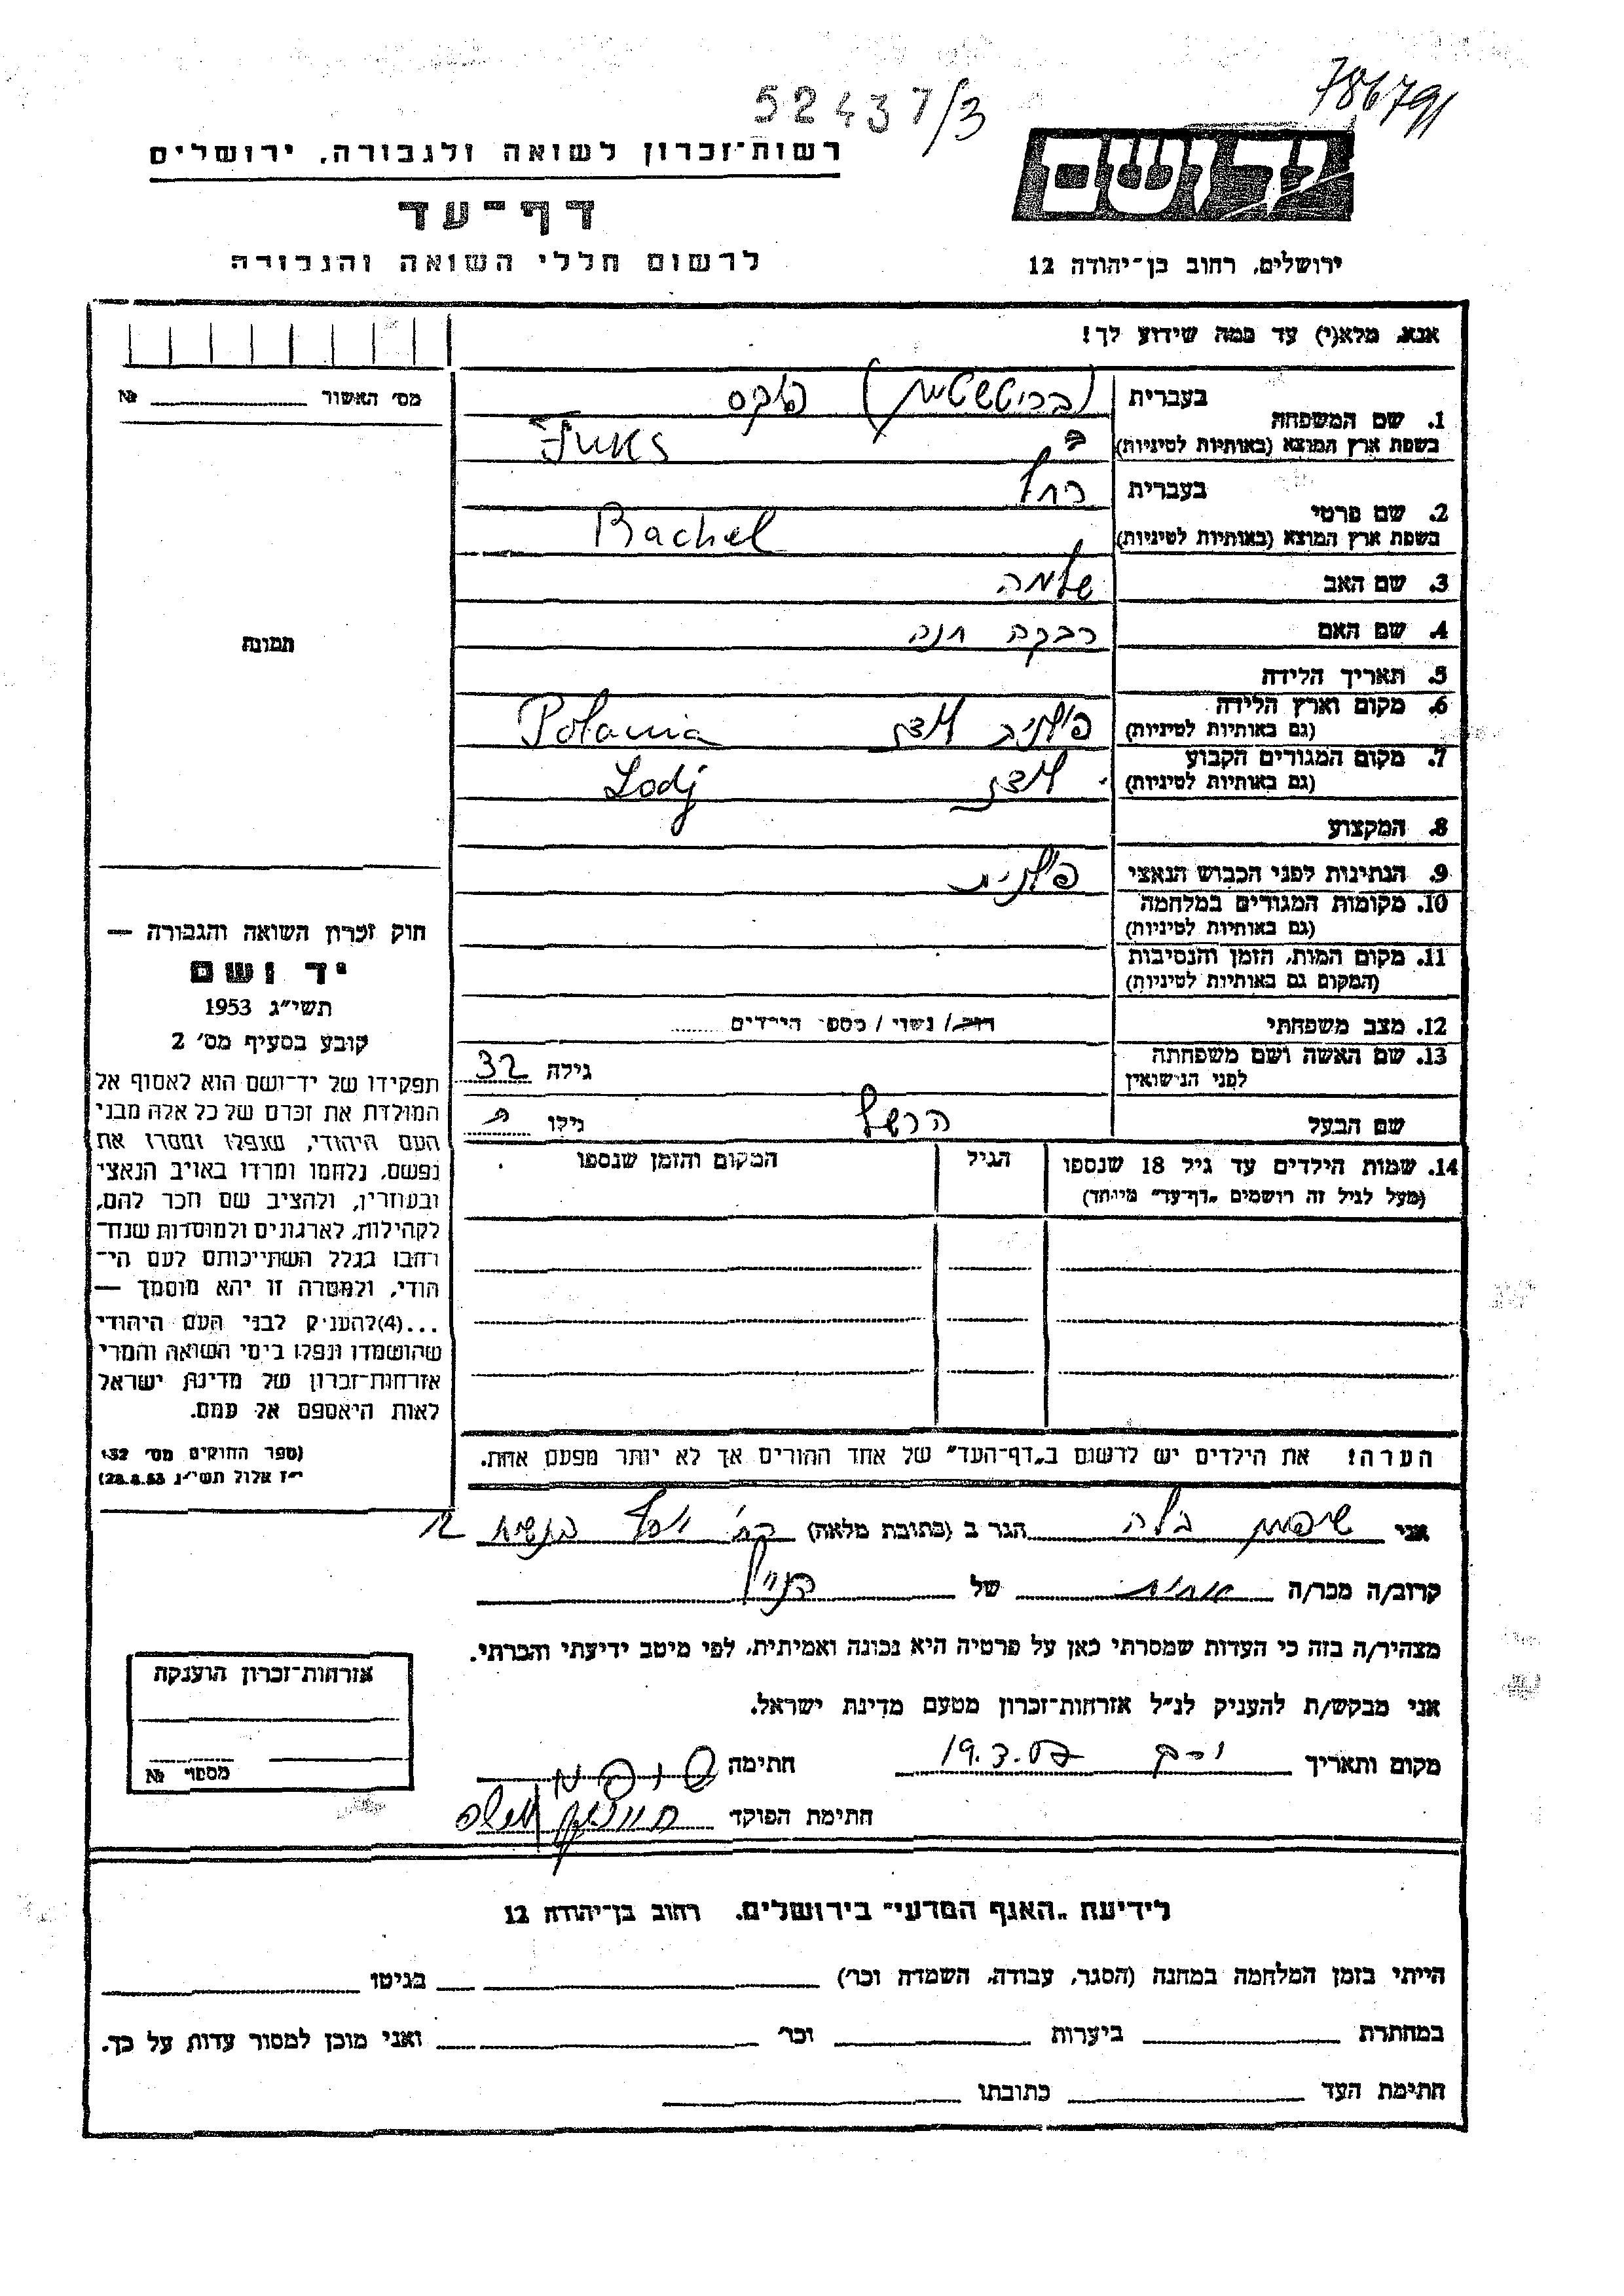 52437/3
78679/1
רשות־זכרון לשואה ולגבורה, ירושלים
דף־עד
לרשום חללי השואה והגבורה
יד ושם
ירושלים, רחוב בן־יהודה 12
אנא, מלא(י) עד כמה שידוע לך!
מס׳ האשור № 
תמונה
1. שם המשפחה
בעברית פוקס
בשפת ארץ המוצא (באותיות לטיניות) Fuks
2. שם פרטי
בעברית רחל
בשפת ארץ המוצא (באותיות לטיניות) Rachel
3. שם האב שלמה
4. שם האם רבקה חנה
5. תאריך הלידה
6. מקום וארץ הלידה
(גם באותיות לטיניות) פולניה לודז Polania
7. מקום המגורים הקבוע
(גם באותיות לטיניות) לודז Lodj
8. המקצוע
9. הנתינות לפני הכבוש הנאצי פולנית
10. מקומות המגורים במלחמה
(גם באותיות לטיניות)
11. מקום המות, הזמן והנסיבות
(המקום גם באותיות לטיניות)
12. מצב משפחתי רוק/ נשוי / מספר הילדים
13. שם האשה ושם משפחתה
לפני הנישואין גילה 32
שם הבעל הרשל גילו
14. שמות הילדים עד גיל 18 שנספו
(מעל לגיל זה רושמים „דף־עד" מיוחד)
הגיל
המקום והזמן שנספו
הערה! את הילדים יש לרשום ב„דף־העד" של אחד ההורים אך לא יותר מפעם אחת.
חוק זכרון השואה והגבורה —
יד ושם
תשי״ג 1953
קובע בסעיף מס׳ 2
תפקידו של יד־ושם הוא לאסוף אל
המולדת את זכרם של כל אלה מבני
העם היהודי, שנפלו ומסרו את
נפשם, נלחמו ומרדו באויב הנאצי
ובעוזריו, ולהציב שם וזכר להם,
לקהילות, לארגונים ולמוסדות שנח־
רבו בגלל השתייכותם לעם הי־
הודי, ולמטרה זו יהא מוסמך —
...(4) להעניק לבני העם היהודי
שהושמדו ונפלו בימי השואה והמרי
אזרחות־זכרון של מדינת ישראל
לאות היאספם אל עמם.
(ספר החוקים מס׳ 132
י״ז אלול תשי״ג 28.8.53)
אני בלה הגר ב (כתובת מלאה) 12
קרוב/ה מכר/ה אחות של הנ״ל
מצהיר/ה בזה כי העדות שמסרתי כאן על פרטיה היא נכונה ואמיתית, לפי מיטב ידיעתי והכרתי.
אני מבקש/ת להעניק לנ״ל אזרחות־זכרון מטעם מדינת ישראל.
מקום ותאריך 19.3 חתימה
חתימת הפוקד
אזרחות־זכרון הוענקה
מספר №
לידיעת „האגף המדעי" בירושלים. רחוב בן־יהודה 12
הייתי בזמן המלחמה במחנה (הסגר, עבודה, השמדה וכו׳) בגיטו
במחתרת ביערות וכו׳ ואני מוכן למסור עדות על כך.
חתימת העד כתובתו